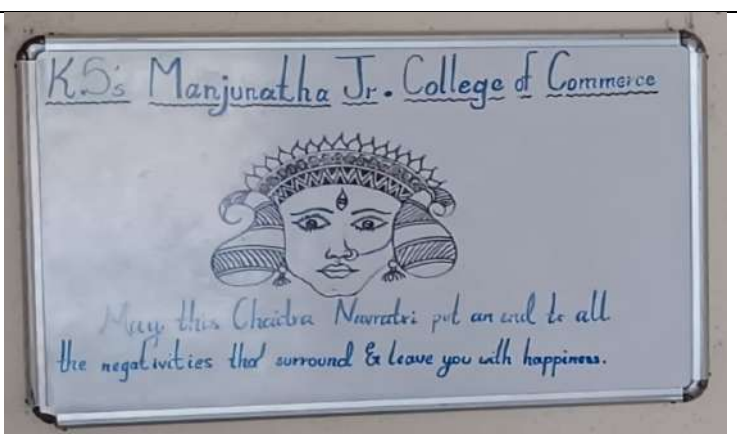 K.S's Manjunatha Jr. College of Commerce
May this Chaitra Navratri put an end to all
the negativities that surround & leave you with happiness.